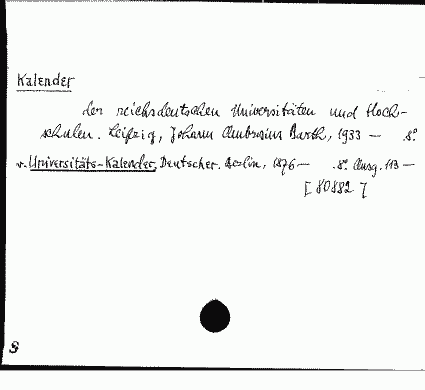 Kalender
der reichsdeutschen Universitäten und Hoch-
schulen. Leipzig, Johann Ambrosius Barth, 1933 — 8º
v. Universitäts-Kalender, Deutscher. Berlin, 1876 — 8º Ausg. 113 —
[80882]